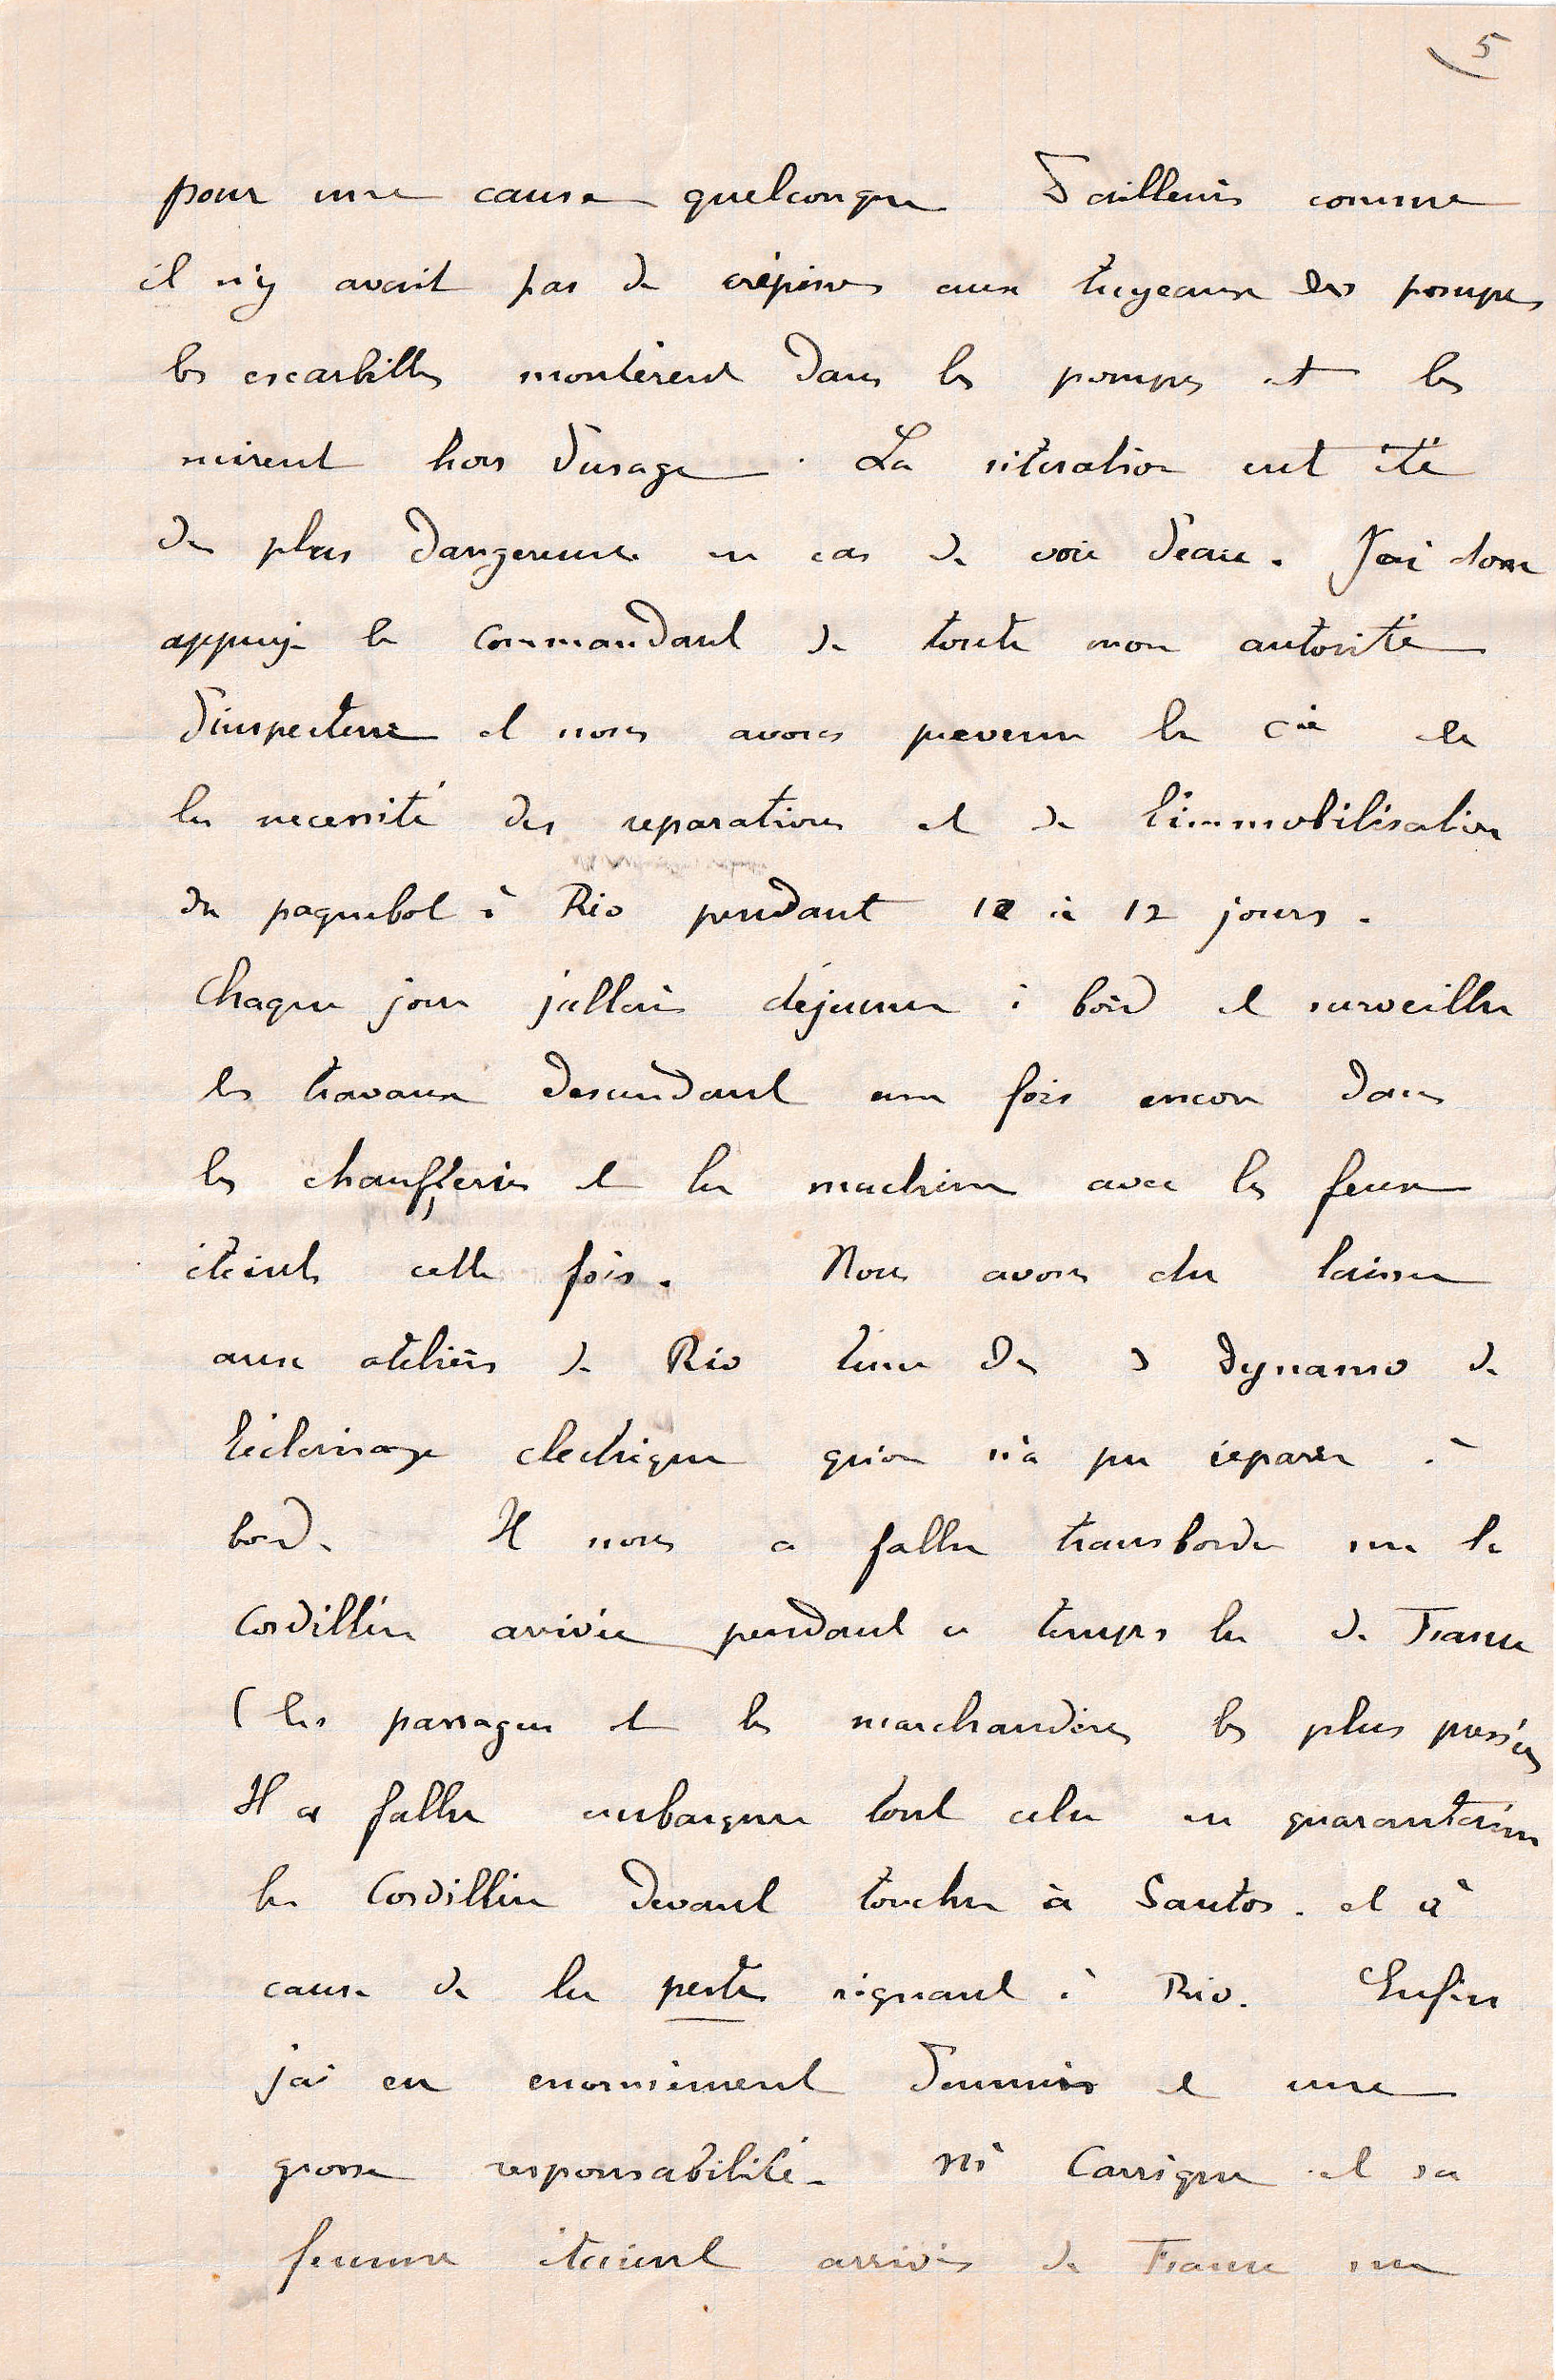 5
pour une cause quelconque D'ailleurs comme
il n'y avait pas de crépines aux tuyeaux des pompes
les escarbilles montèrent dans les pompes et les
mirent hors d'usage. La situation eut été
des plus dangereuse en cas de voie d'eau. J'ai donc
appuyé le Commandant de toute mon autorité
d'inspecteur et nous avons prevenu la Cie de
la necessité des reparations et de l'immobilisation
du paquebot à Rio pendant 10 à 12 jours.
Chaque jour j'allais déjeuner à bord et surveiller
les travaux descendant une fois encore dans
les chaufferies et la machine avec les feux
éteints cette fois. Nous avons du laisser
aux ateliers de Rio l'une des 3 dynamo de
l'éclairage electrique qu'on n'a pu reparer à
bord. Il nous a fallu transborder sur la
Cordillère arrivée pendant ce temps là de France
(les passagers et les marchandises les plus pressées
Il a fallu embarquer tout cela en quarantaine
la Cordillère devant toucher à Santos. et à
cause de la peste régnant à Rio. Enfin
j'ai eu enormément d'ennuis et une
grosse responsabilité. Mr Carrigue et sa
femme étaient arrivés de France sur